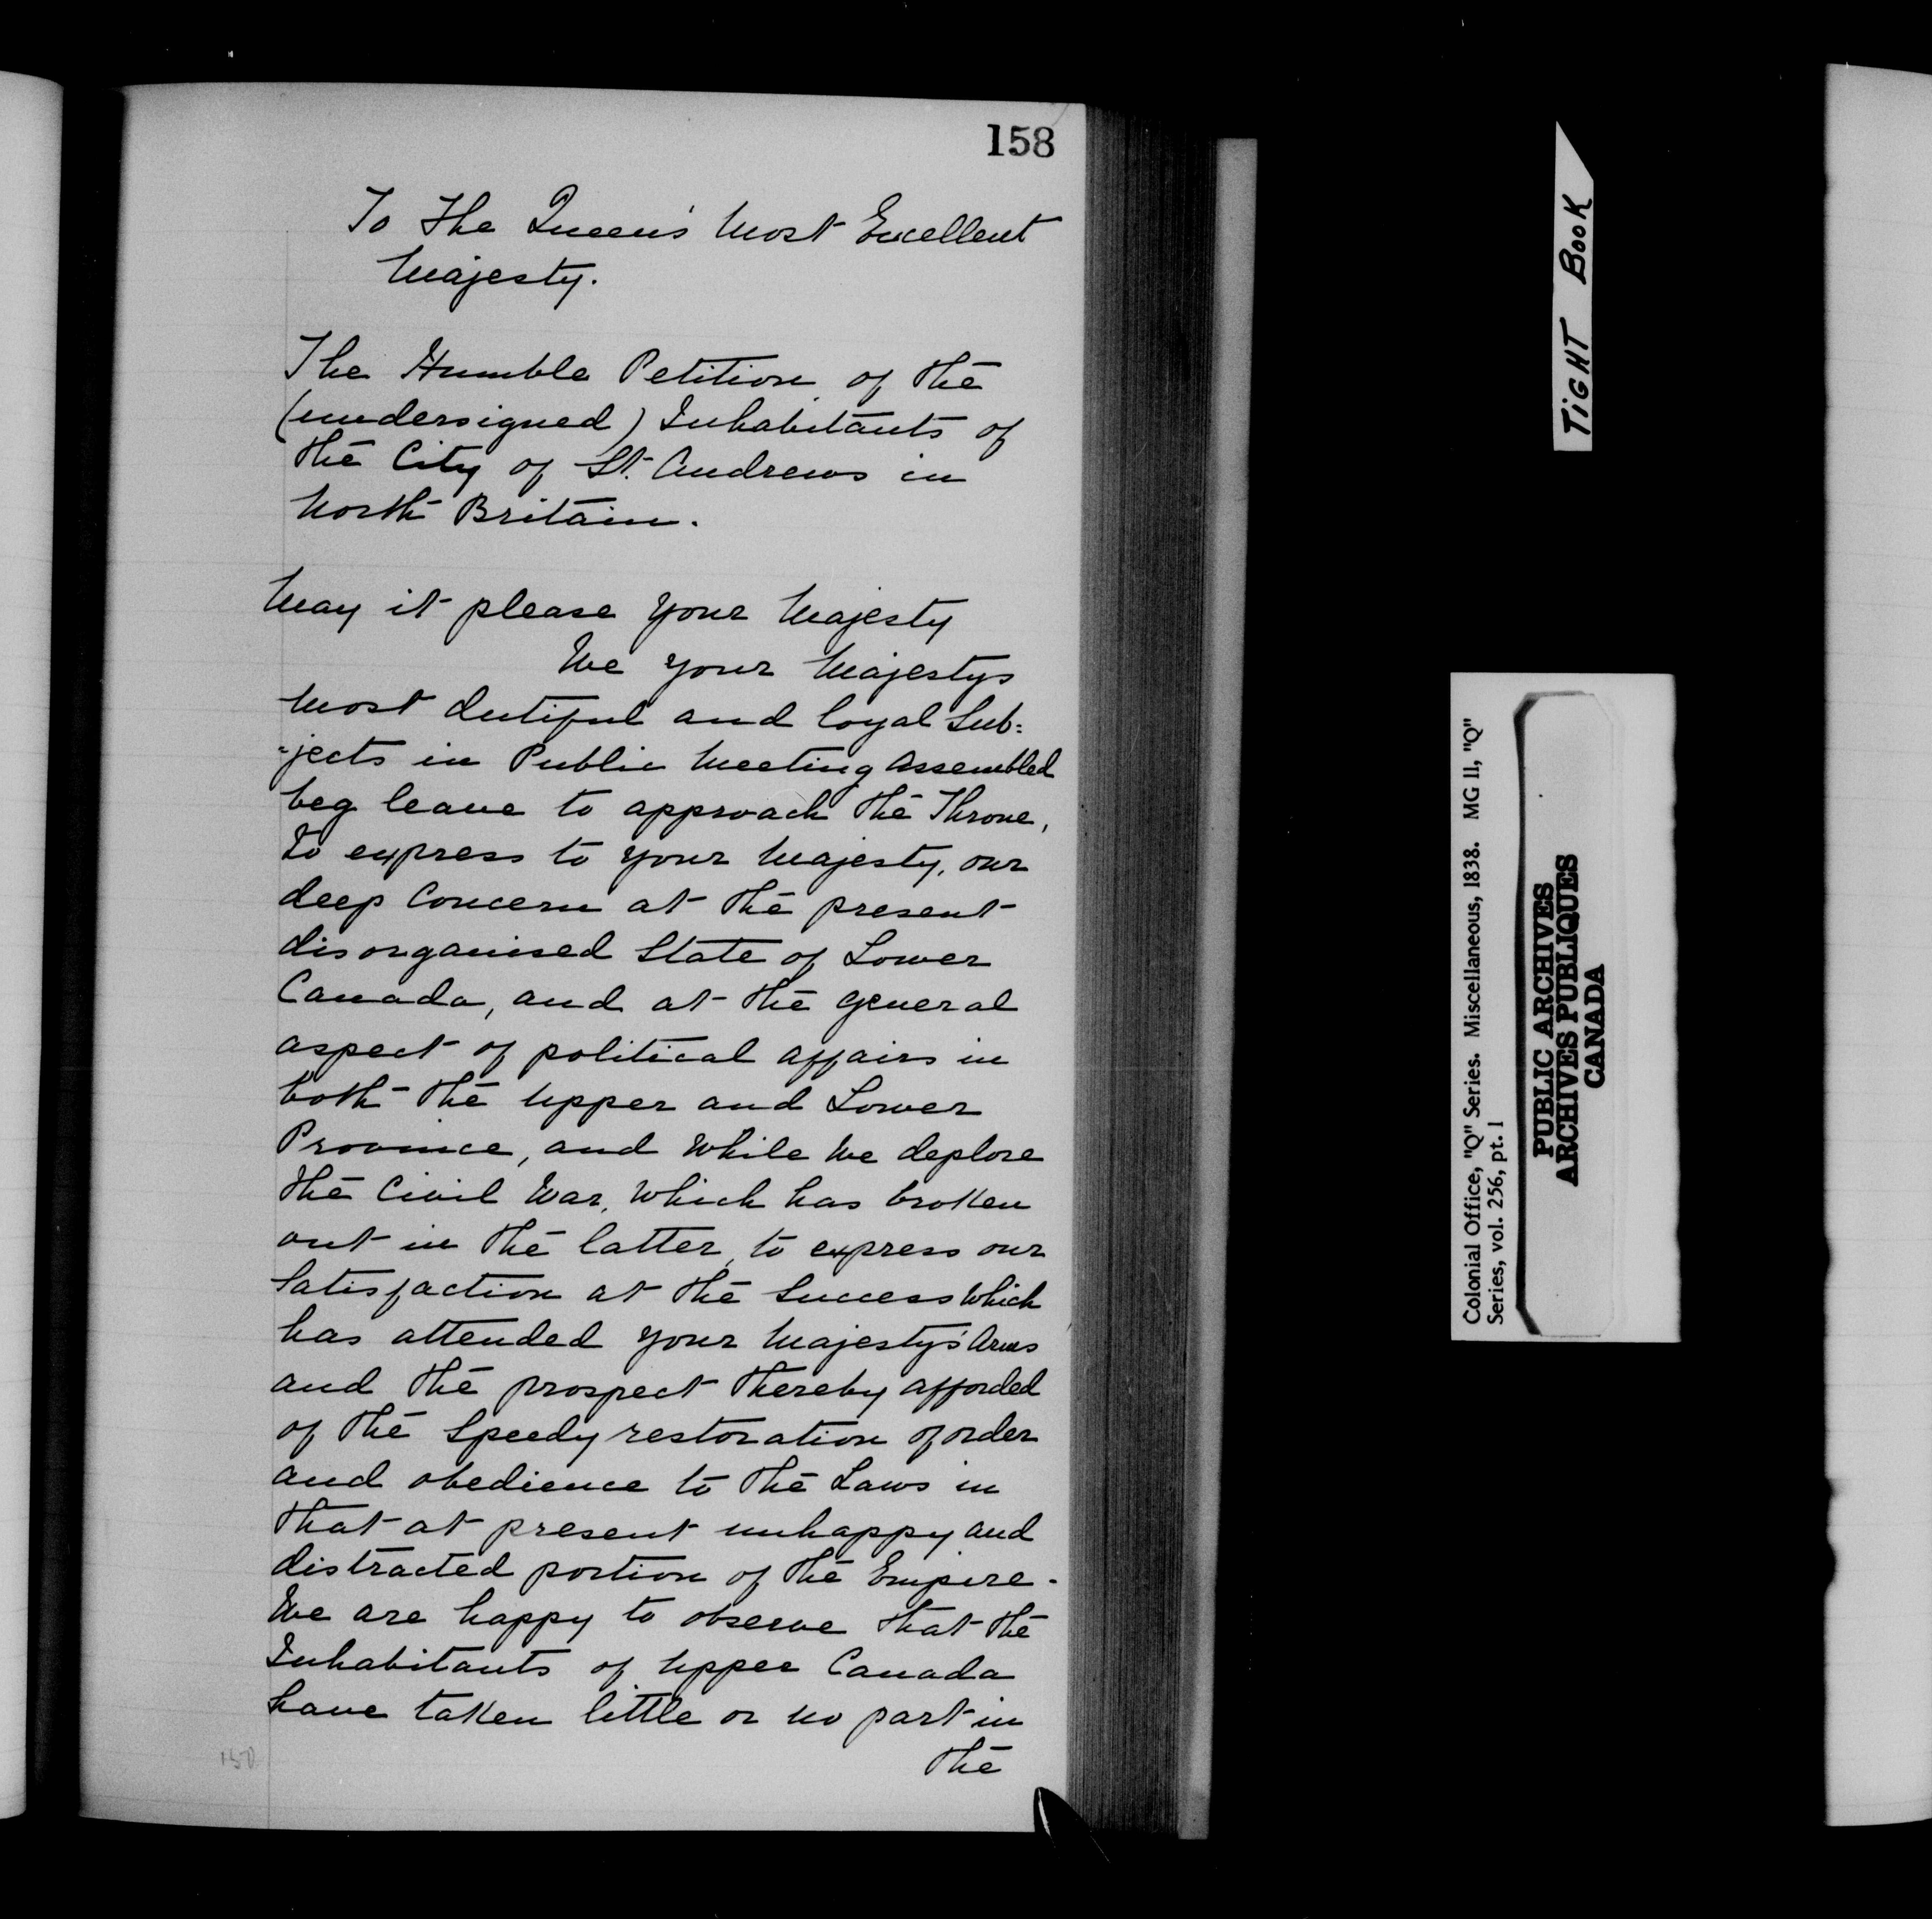 158
To The Queen's Most Excellent
Majesty.
The Humble Petition of the
(undersigned) Inhabitants of
the City of St. Andrews in
North Britain.
May it please your Majesty
We your Majestys
most dutiful and loyal Sub=
=jects in Public Meeting Assembled
beg leave to approach the Throne,
To express to your Majesty, our
deep Concern at the present
disorganised State of Lower
Canada, and at the general
aspect of political affairs in
both the Upper and Lower
Province, and while We deplore
the Civil War, which has broken
out in the latter, to express our
Satisfaction at the Success which
has attended your Majesty's Arms
and the prospect thereby afforded
of the Speedy restoration of order
and obedience to the Laws in
that at present unhappy and
distracted portion of the Empire.
We are happy to observe that the
Inhabitants of Upper Canada
have taken little or no part in
the
150
TIGHT BOOK
Colonial Office, "Q" Series. Miscellaneous, 1838. MG 11, "Q"
Series, vol. 256, pt. 1
PUBLIC ARCHIVES
ARCHIVES PUBLIQUES
CANADA